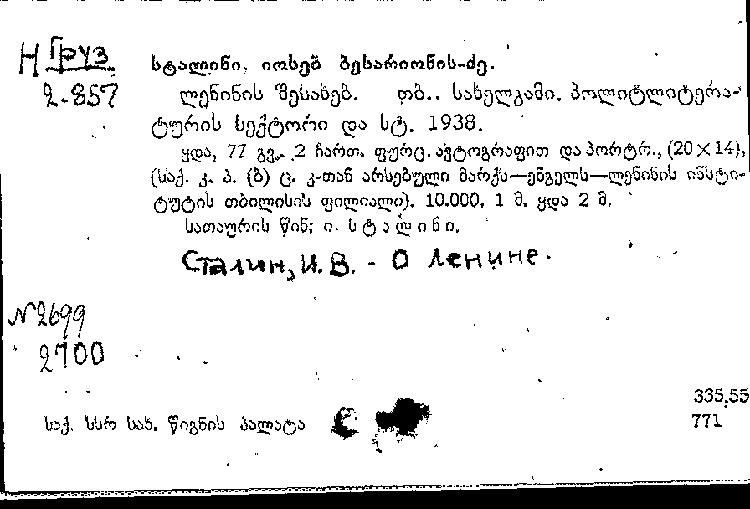 Н Груз
2-857
სტალინი, იოსებ ბესარიონის-ძე.
ლენინის შესახებ. თბ., სახელგამი. პოლიტლიტერა-
ტურის სექტორი და სტ. 1938.
ყდა, 77 გვ., 2 ჩართ. ფურც. ავტოგრაფით და პორტრ., (20×14),
(საქ. კ. პ. (ბ) ც. კ-თან არსებული მარქს—ენგელს—ლენინის ინსტი-
ტუტის თბილისის ფილიალი). 10.000. 1 მ. ყდა 2 მ.
სათაურის წინ: ი. სტალინი.
Сталин, И. В. - О Ленине.
№2699
2700
335.55
საქ. სსრ სახ. წიგნის პალატა
771